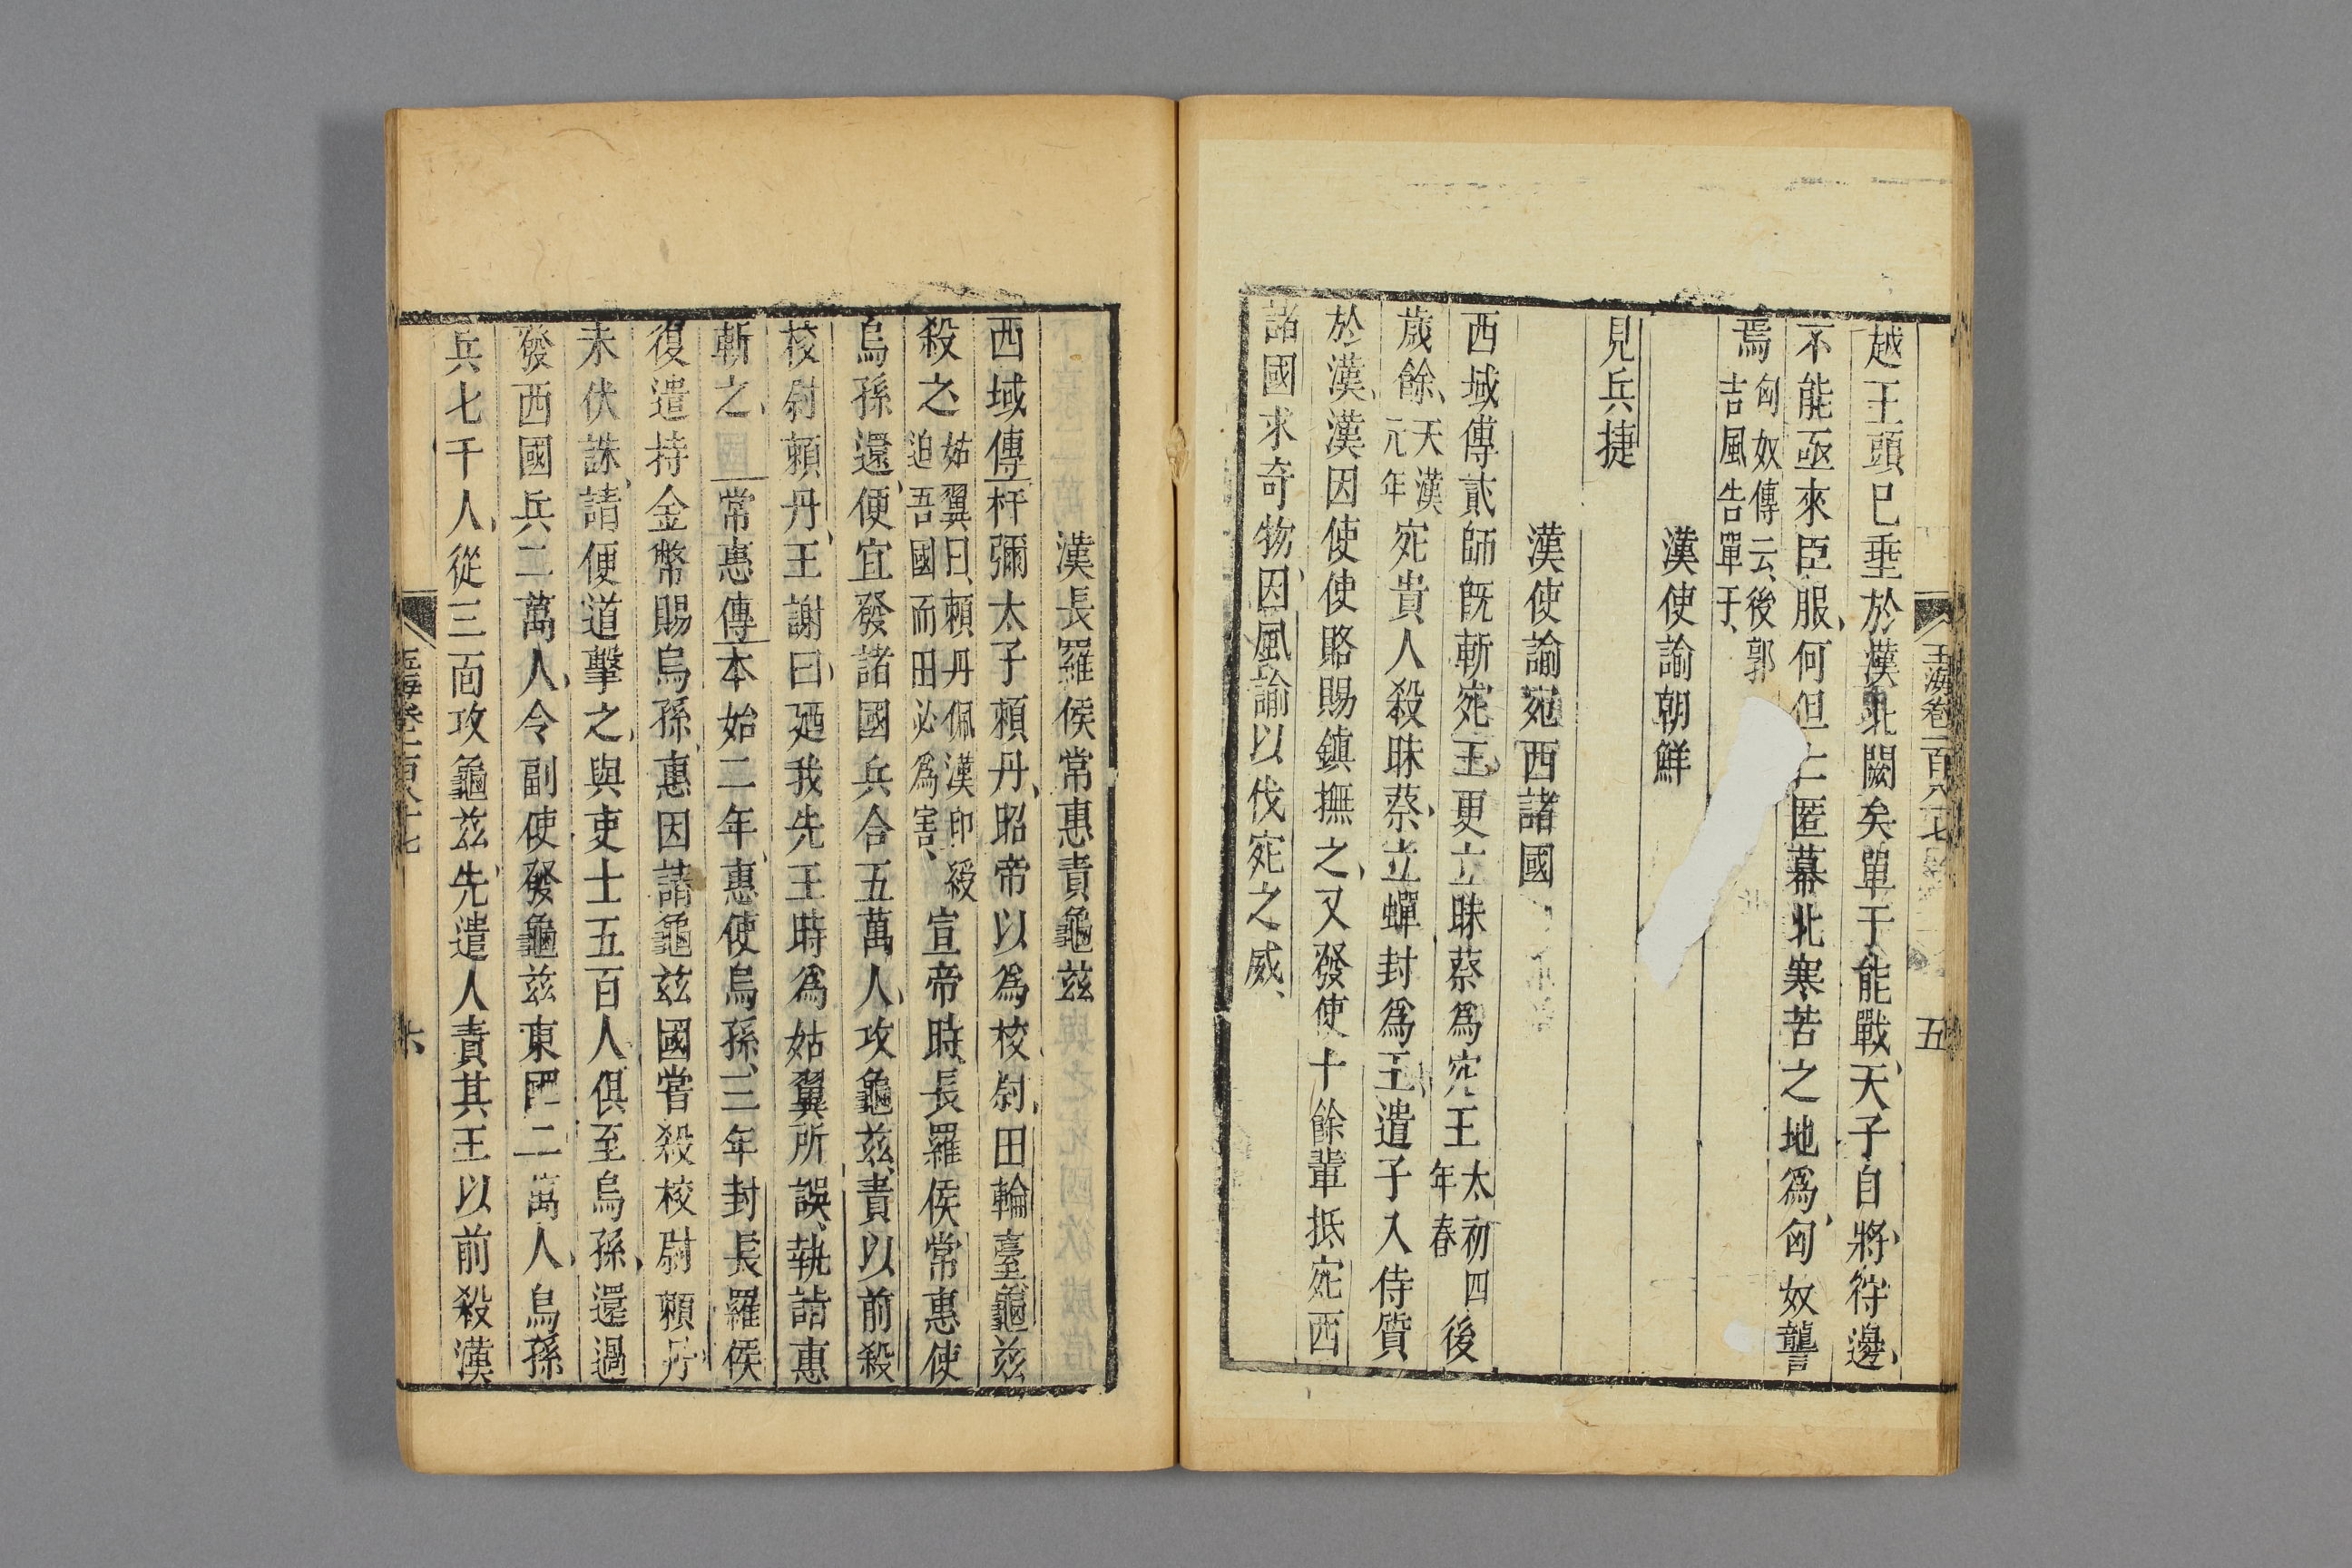 玉海卷一百八十七 五
越王頭已垂於漢北闕矣單于能戰天子自將待邊
不能亟來臣服何但亡匿幕北寒苦之地爲匈奴讋
焉匈奴傳云後郭
吉風告單于
漢使諭朝鮮
見兵捷
漢使諭宛西諸國
西域傳貳師旣斬宛王更立昧蔡爲宛王太初四年春後
歲餘天漢元年宛貴人殺昧蔡立蟬封爲王遣子入侍質
於漢漢因使使賂賜鎮撫之又發使十餘輩抵宛西
諸國求奇物因風諭以伐宛之威
漢長羅侯常惠責龜玆
西域傳杅彌太子賴丹昭帝以爲校尉田輪臺龜玆
殺之姑翼曰賴丹佩漢印綬迫吾國而田必爲害宣帝時長羅侯常惠使
烏孫還便宜發諸國兵合五萬人攻龜玆責以前殺
校尉賴丹王謝曰廼我先王時爲姑翼所誤執詣惠
斬之常惠傳本始二年惠使烏孫三年封長羅侯
復遣持金幣賜烏孫惠因請龜玆國嘗殺校尉賴丹
未伏誅請便道擊之與吏士五百人俱至烏孫還過
發西國兵二萬人令副使發龜玆東國二萬人烏孫
兵七千人從三面攻龜玆先遣人責其王以前殺漢
玉海卷一百八十七 六